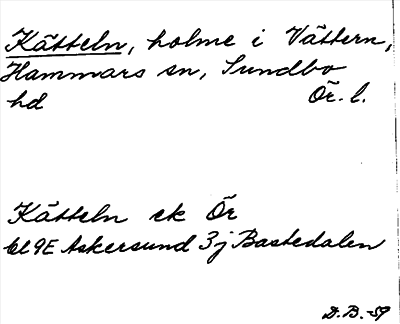 Kätteln, holme i Vättern,
Hammars sn, Sundbo
hd Ör. l.
Kätteln ek Ör
9E Askersund 3j Bastedalen
D.B.-59